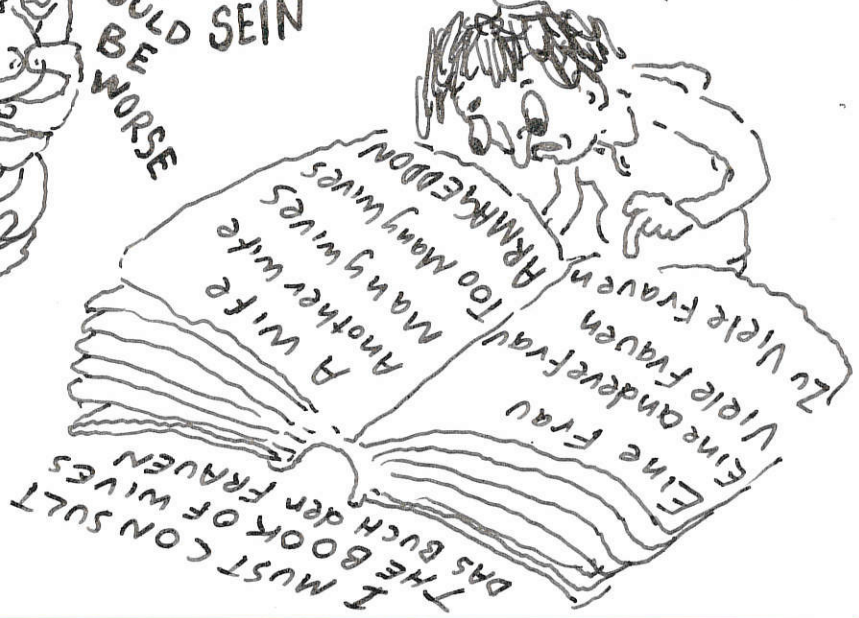 OULD SEIN
BE
WORSE
A WIFE
Another wife
Many wives
Too Many wives
ARMAGEDDON
Eine Frau
Eine andere Frau
Viele Frauen
Zu Viele Frauen
I MUST CONSULT
THE BOOK OF WIVES
DAS BUCH den FRAUEN